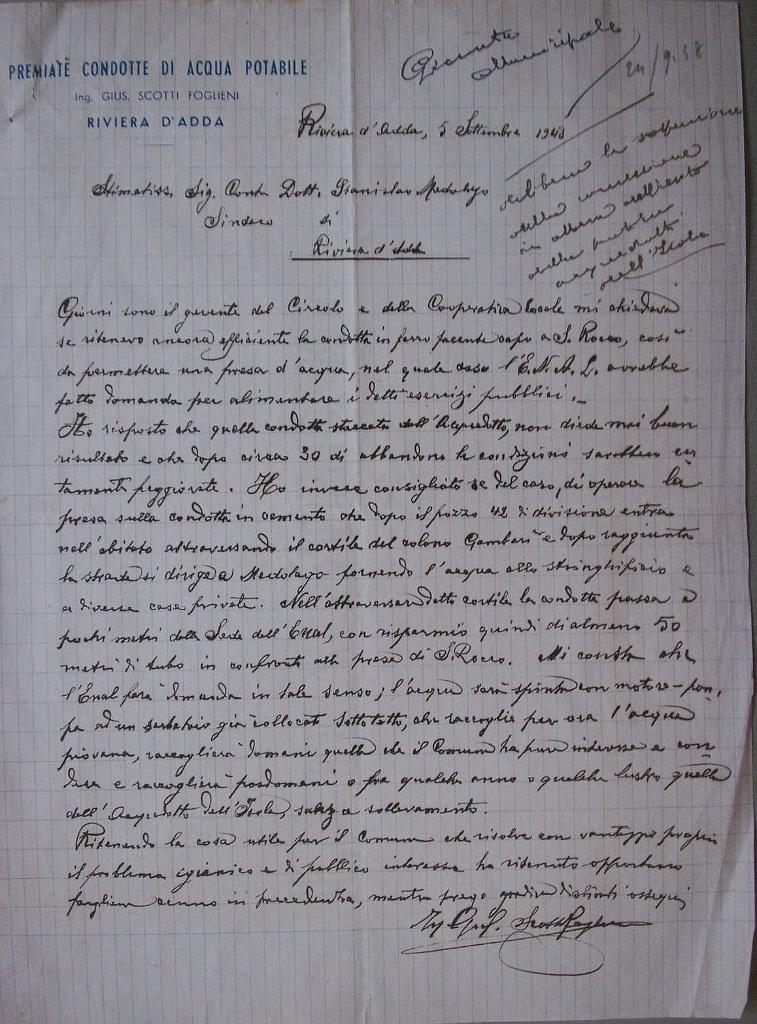 PREMIATE CONDOTTE DI ACQUA POTABILE
Ing. GIUS. SCOTTI FOGLIENI
RIVIERA D'ADDA
Giunta
Municipale
24/9.48
Riviera d'Adda, 5 Settembre 1948
delibera la
della concessione
in attesa dell'
della
acquedotto
dell'Isola
Stimatiss. Sig. Conte Dott. Stanislao Medolago
Sindaco di
Riviera d'Adda
Giorni sono il gerente del Circolo e della Cooperativa locale mi chiedeva
se ritenevo ancora efficiente la condotta in ferro facente capo a S. Rocco, così
da permettere una presa d'acqua, nel quale caso l'E.N.A.L. avrebbe
fatto domanda per alimentare i detti esercizi pubblici._
Ho risposto che quella condotta staccata dall'Acquedotto, non diede mai buon
risultato e che dopo circa 30 di abbandono le condizioni sarebbero cer
tamente peggiorate. Ho invece consigliato se del caso, di operare la
presa sulla condotta in cemento che dopo il pozzo 42 di divisione entra
nell'abitato attraversando il cortile del colono Gambari e dopo raggiunta
la strada si dirige a Medolago fornendo l'acqua allo stringhificio e
a diverse case private. Nell'attraversare detto cortile la condotta passa a
pochi metri dalla Sede dell'Enal, con risparmio quindi di almeno 50
metri di tubo in confronto alla presa di S. Rocco. Mi consta che
l'Enal farà domanda in tale senso; l'acqua sarà spinta con motore-pom,
pa ad un serbatoio già collocato sottotetto, che raccoglie per ora l'acqua
piovana, raccoglierà domani quella che il Comune ha pure interesse a con
dere e raccoglierà posdomani o fra qualche anno o qualche lustro quella
dell'Acquedotto dell'Isola, senza sollevamento.
Ritenendo la cosa utile per il Comune che risolve con vantaggio proprio
il problema igienico e di pubblico interesse ho ritenuto opportuno
fargliene cenno in precedenza, mentre prego gradire distinti ossequi
Ing Gius. Scotti Foglieni